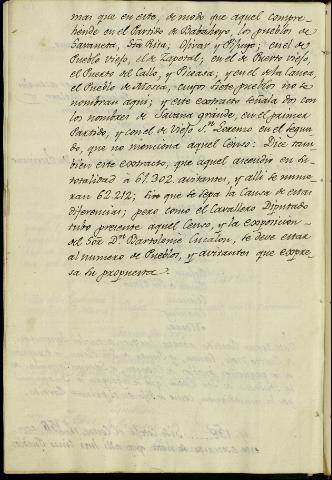 mas que en este, de modo que aquel compre-
hende en el Partido de Babahoyo, los pueblos de
Savaneta, Sta Rita, y
Pueblo viejo, el de Zapotal; en el de Puerto viejo,
el Puerto de Callo, y Picoasa; y en el de la Canoa,
el Pueblo de Mocha, cuyos siete pueblos no se
nombran aqui; y este extracto señala dos con
los nombres de Savana grande, en el primer
Partido, y con el de Viejo Sn. Lorenzo en el segun-
do, que no menciona aquel Censo: Dice tam-
bien este extracto, que aquel ascendio en su
totalidad à 61.302. avitantes, y alli se nume-
ran 62.212; sin que se sepa la Causa de estas
diferencias; pero como el Cavallero Diputado
tubo presente aquel Censo, y la exposicion
del Sor. Dn. Bartolomè Cucalon, se deve estar
al numero de Pueblos, y avitantes que expre-
sa su propuesta.